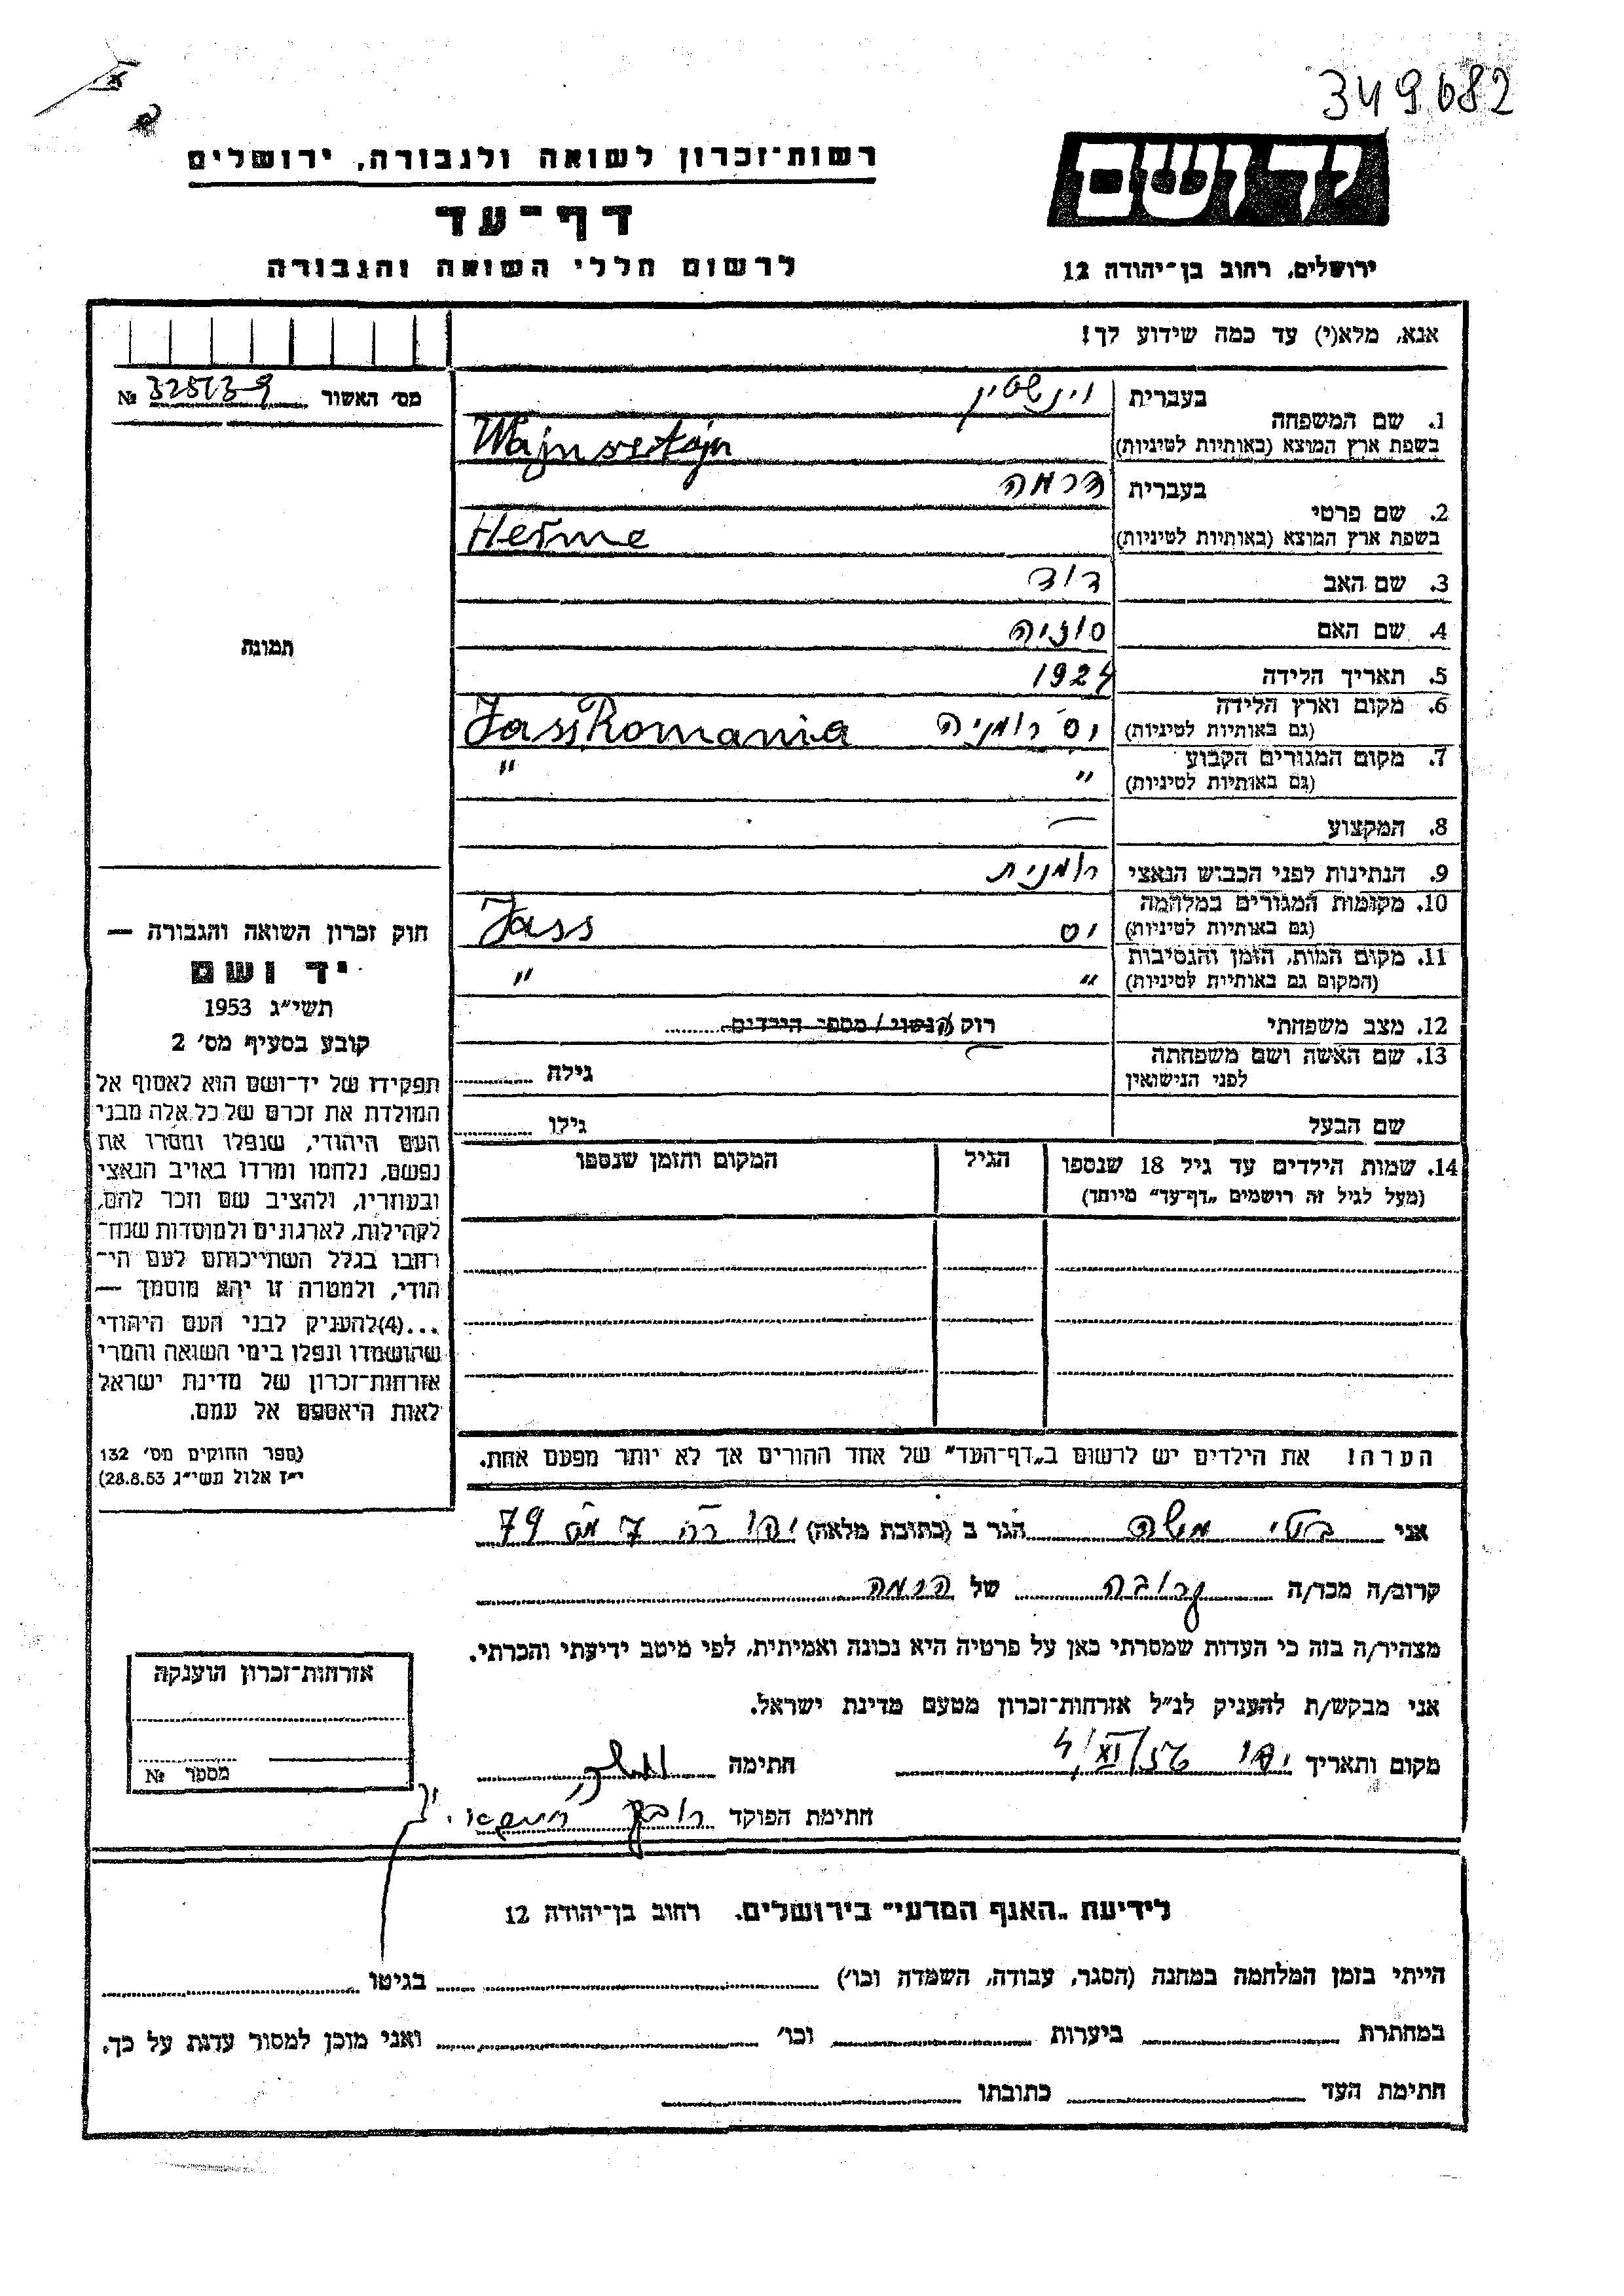 349682
רשות־זכרון לשואה ולגבורה, ירושלים
דף־עד
לרשום חללי השואה והגבורה
יד ושם
ירושלים, רחוב בן־יהודה 12
אנא, מלא(י) עד כמה שידוע לך!
מס׳ האשור № 325139
1. שם המשפחה
בעברית וינשטין
בשפת ארץ המוצא (באותיות לטיניות) Wajnsztajn
2. שם פרטי
בעברית הרמה
בשפת ארץ המוצא (באותיות לטיניות) Herme
3. שם האב דוד
4. שם האם סוניה
5. תאריך הלידה 1924
6. מקום וארץ הלידה (גם באותיות לטיניות) יס רומניה Jass Romania
7. מקום המגורים הקבוע (גם באותיות לטיניות) " "
8. המקצוע —
9. הנתינות לפני הכבוש הנאצי רומנית
10. מקומות המגורים במלחמה (גם באותיות לטיניות) יס Jass
11. מקום המות, הזמן והנסיבות (המקום גם באותיות לטיניות) " "
12. מצב משפחתי רוק/הנשוי/מספר הילדים
13. שם האשה ושם משפחתה לפני הנישואין — גילה
שם הבעל גילו
14. שמות הילדים עד גיל 18 שנספו
(מעל לגיל זה רושמים „דף־עד" מיוחד)
הגיל
המקום והזמן שנספו
הערה! את הילדים יש לרשום ב„דף־העד" של אחד ההורים אך לא יותר מפעם אחת.
תמונה
חוק זכרון השואה והגבורה —
יד ושם
תשי״ג 1953
קובע בסעיף מס׳ 2
תפקידו של יד־ושם הוא לאסוף אל
המולדת את זכרם של כל אלה מבני
העם היהודי, שנפלו ומסרו את
נפשם, נלחמו ומרדו באויב הנאצי
ובעוזריו, ולהציב שם וזכר להם,
לקהילות, לארגונים ולמוסדות שנח־
רחבו בגלל השתייכותם לעם הי־
הודי, ולמטרה זו יהא מוסמך —
...(4)להעניק לבני העם היהודי
שהושמדו ונפלו בימי השואה והמרי
אזרחות־זכרון של מדינת ישראל
לאות היאספם אל עמם.
(ספר החוקים מס׳ 132
י״ז אלול תשי״ג 28.8.53)
אני משה הגר ב (כתובת מלאה) יפו 7 מס 79
קרוב/ה מכר/ה קרובה של הרמה
מצהיר/ה בזה כי העדות שמסרתי כאן על פרטיה היא נכונה ואמיתית, לפי מיטב ידיעתי והכרתי.
אני מבקש/ת להעניק לנ״ל אזרחות־זכרון מטעם מדינת ישראל.
מקום ותאריך יפו 4/XI/56 חתימה
חתימת הפוקד
אזרחות־זכרון הוענקה
מספר №
לידיעת „האגף המדעי" בירושלים, רחוב בן־יהודה 12
הייתי בזמן המלחמה במחנה (הסגר, עבודה, השמדה וכו׳) בגיטו
במחתרת ביערות וכו׳ ואני מוכן למסור עדות על כך.
חתימת העד כתובתו